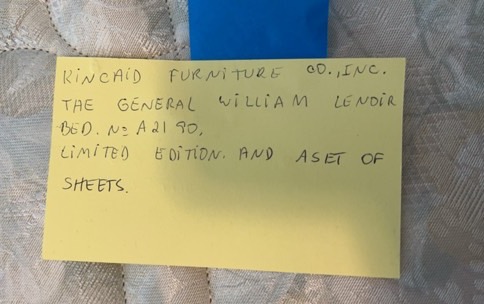 KINCAID FURNITURE CO., INC.
THE GENERAL WILLIAM LENOIR
BED. No A2190,
LIMITED EDITION. AND A SET OF
SHEETS.